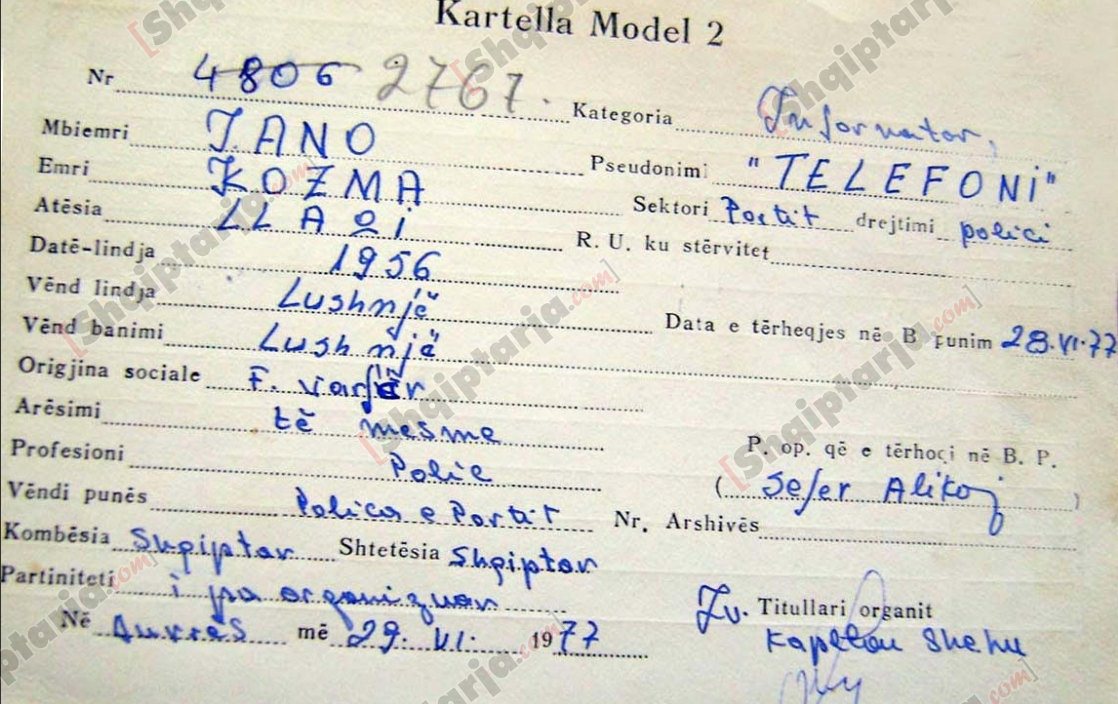 Kartella Model 2
Nr 4806 2767. Kategoria Informator,
Mbiemri JANO
Pseudonimi "TELEFONI"
Emri KOZMA
Sektori Portit drejtimi polici
Atësia LLAQI
R. U. ku stërvitet
Datë-lindja 1956
Vënd lindja Lushnjë
Data e tërheqjes në B punim 28.VI.77
Vënd banimi Lushnjë
Origjina sociale F. varfër
Arësimi të mesme
P. op. që e tërhoqi në B. P.
Profesioni Polic
(Sefer Alikoj)
Vëndi punës Policia e Portit Nr. Arshivës
Kombësia Shqiptar Shtetësia Shqiptar
Partiniteti i pa organizuar
Zv. Titullari organit
Në Durrës më 29. VI. 1977
Kapiten Shehu
[Shqiptarja.com]